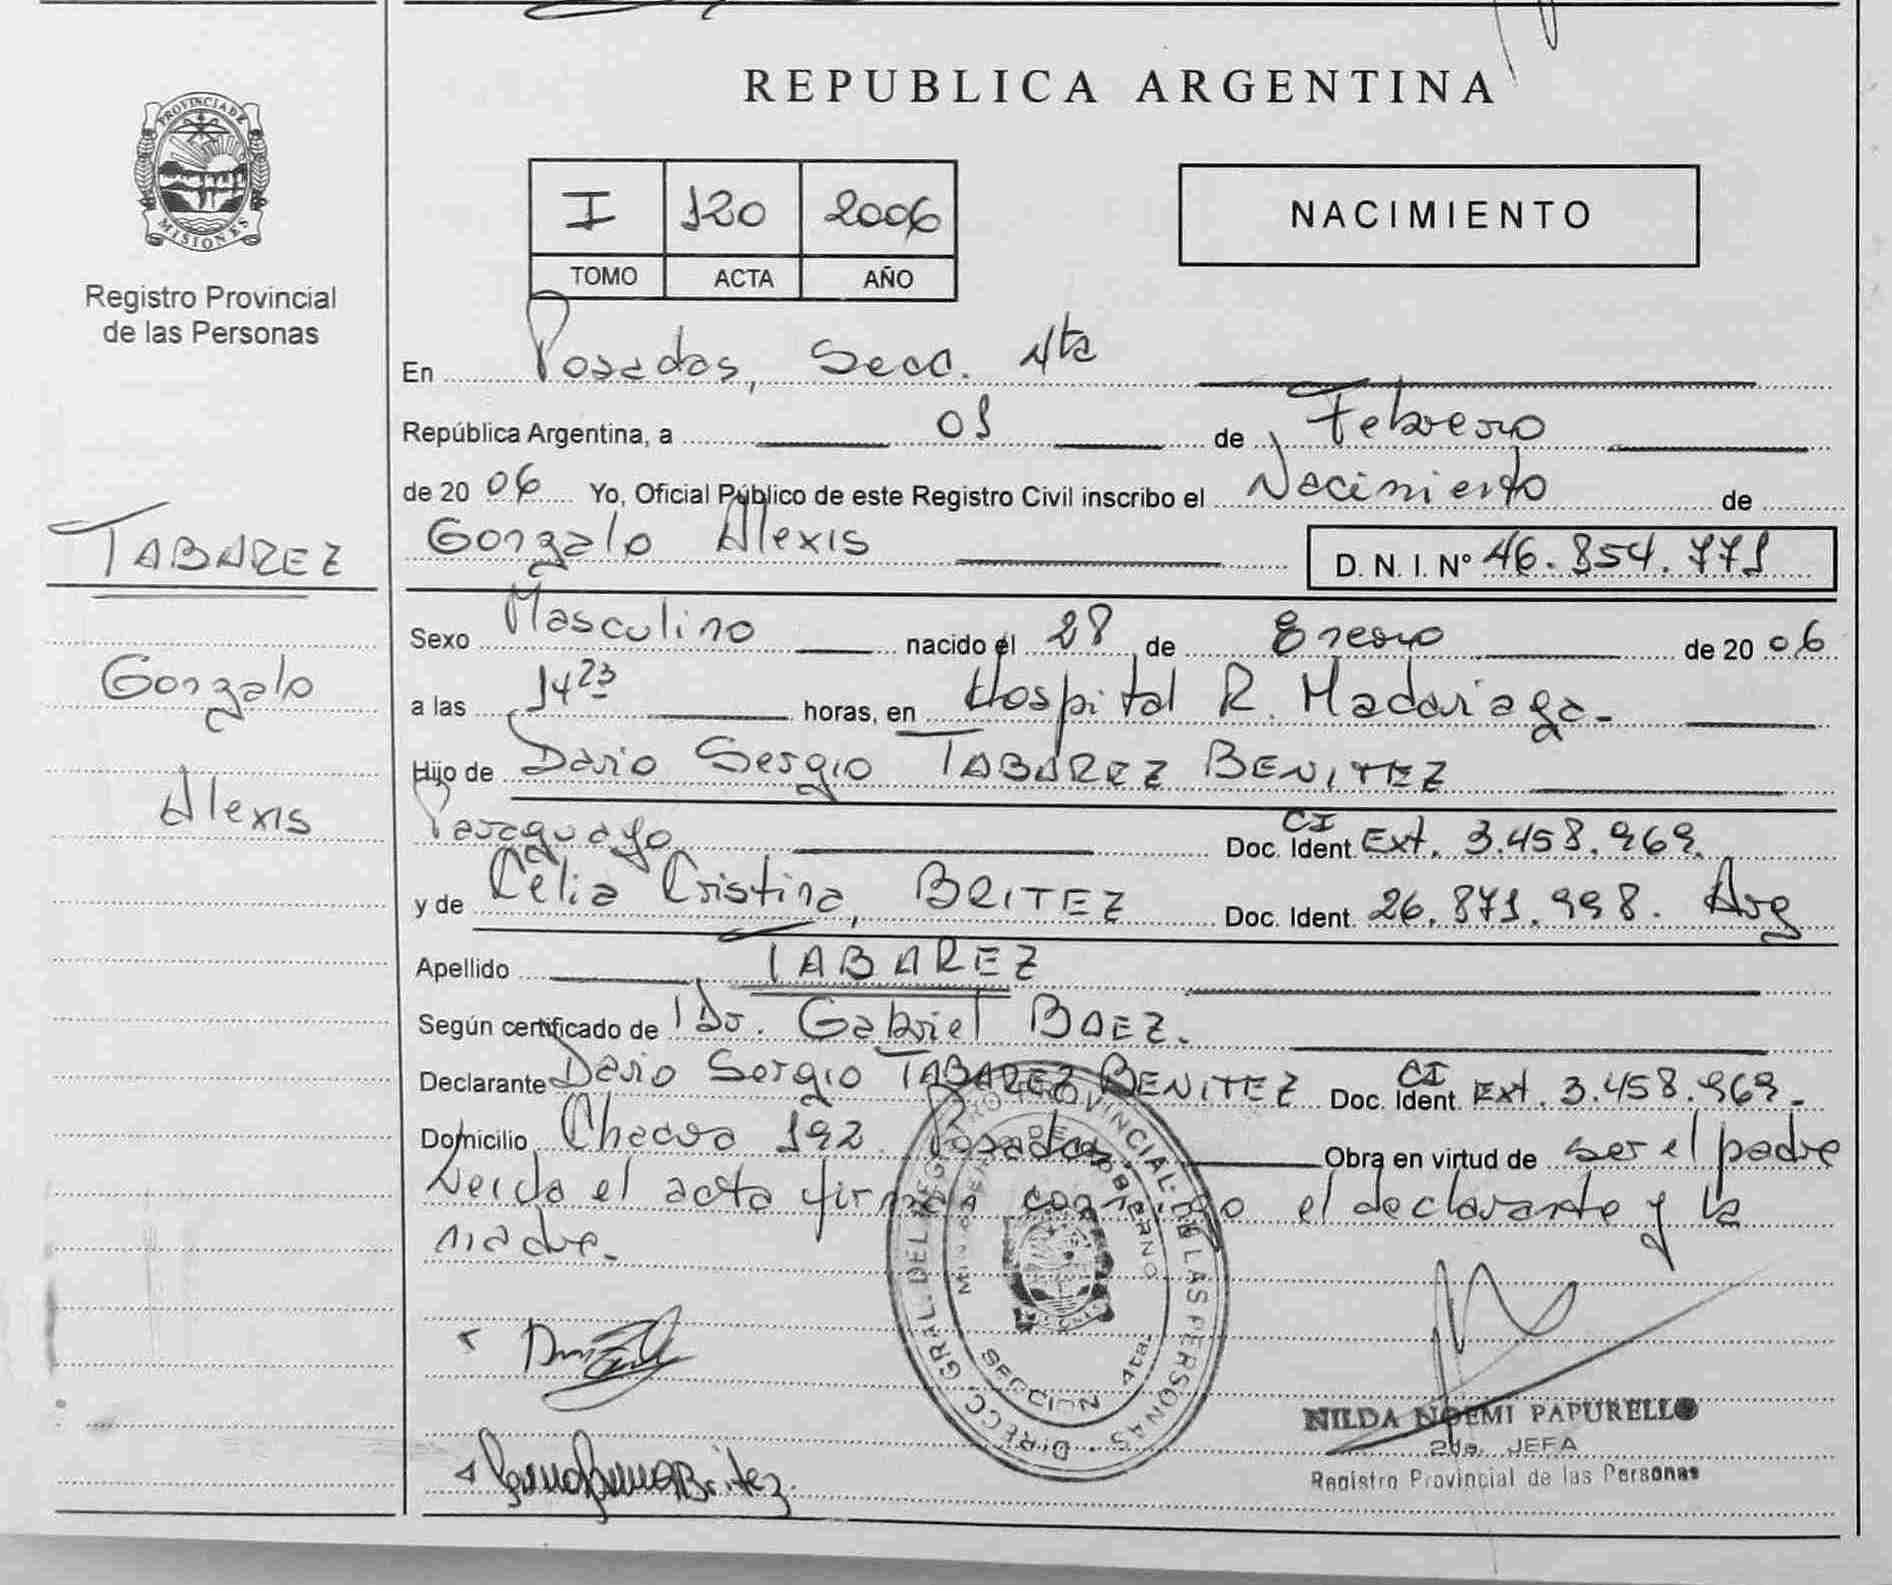 REPUBLICA ARGENTINA
PROVINCIA DE
MISIONES
Registro Provincial
de las Personas
I 120 2006
TOMO ACTA AÑO
NACIMIENTO
En Posadas, Secc. 4ta
República Argentina, a 01 de Febrero
de 20 06 Yo, Oficial Público de este Registro Civil inscribo el Nacimiento de
Gonzalo Alexis D. N. I. Nº 46.854.771
TABAREZ
Gonzalo
Alexis
Sexo Masculino nacido el 28 de Enero de 20 06
a las 14 23 horas, en Hospital R. Madariaga.-
Hijo de Dario Sergio TABAREZ BENITEZ
Paraguayo Doc. Ident. CI Ext. 3.458.969.
y de Celia Cristina, BRITEZ Doc. Ident. 26.871.998. Arg
Apellido TABAREZ
Según certificado de Dr. Gabriel BAEZ.
Declarante Dario Sergio TABAREZ BENITEZ Doc. Ident. CI Ext. 3.458.969.-
Domicilio Chacra 192 Posadas Obra en virtud de ser el padre
Leida el acta firman conmigo el declarante y la
madre.-
DIRECC. GRAL. DEL REGISTRO PROVINCIAL DE LAS PERSONAS
GOBIERNO
SECCION 4ta.
Britez.
NILDA NOEMI PAPURELLO
2da. JEFA
Registro Provincial de las Personas